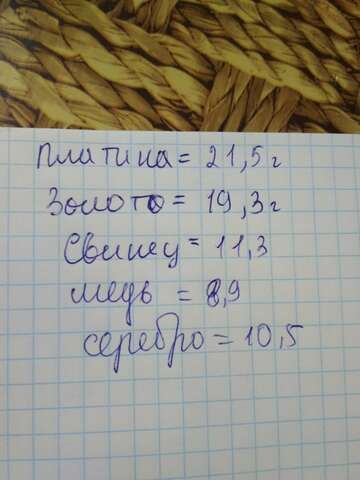 Платина = 21,5 г
Золото = 19,3 г
Свинец = 11,3
медь = 8,9
серебро = 10,5